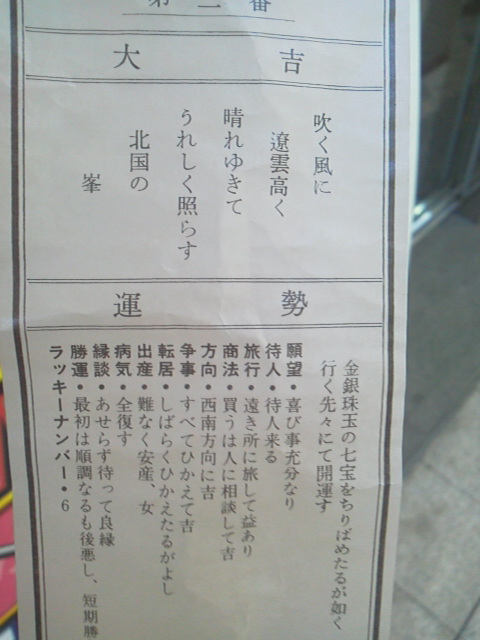 第二番
大吉
吹く風に
遼雲高く
晴れゆきて
うれしく照らす
北国の
峯
運勢
金銀珠玉の七宝をちりばめたるが如く
行く先々にて開運す
願望・喜び事充分なり
待人・待人来る
旅行・遠き所に旅して益あり
商法・買うは人に相談して吉
方向・西南方向に吉
争事・すべてひかえて吉
転居・しばらくひかえたるがよし
出産・難なく安産、女
病気・全復す
縁談・あせらず待って良縁
勝運・最初は順調なるも後悪し、短期勝
ラッキーナンバー・6